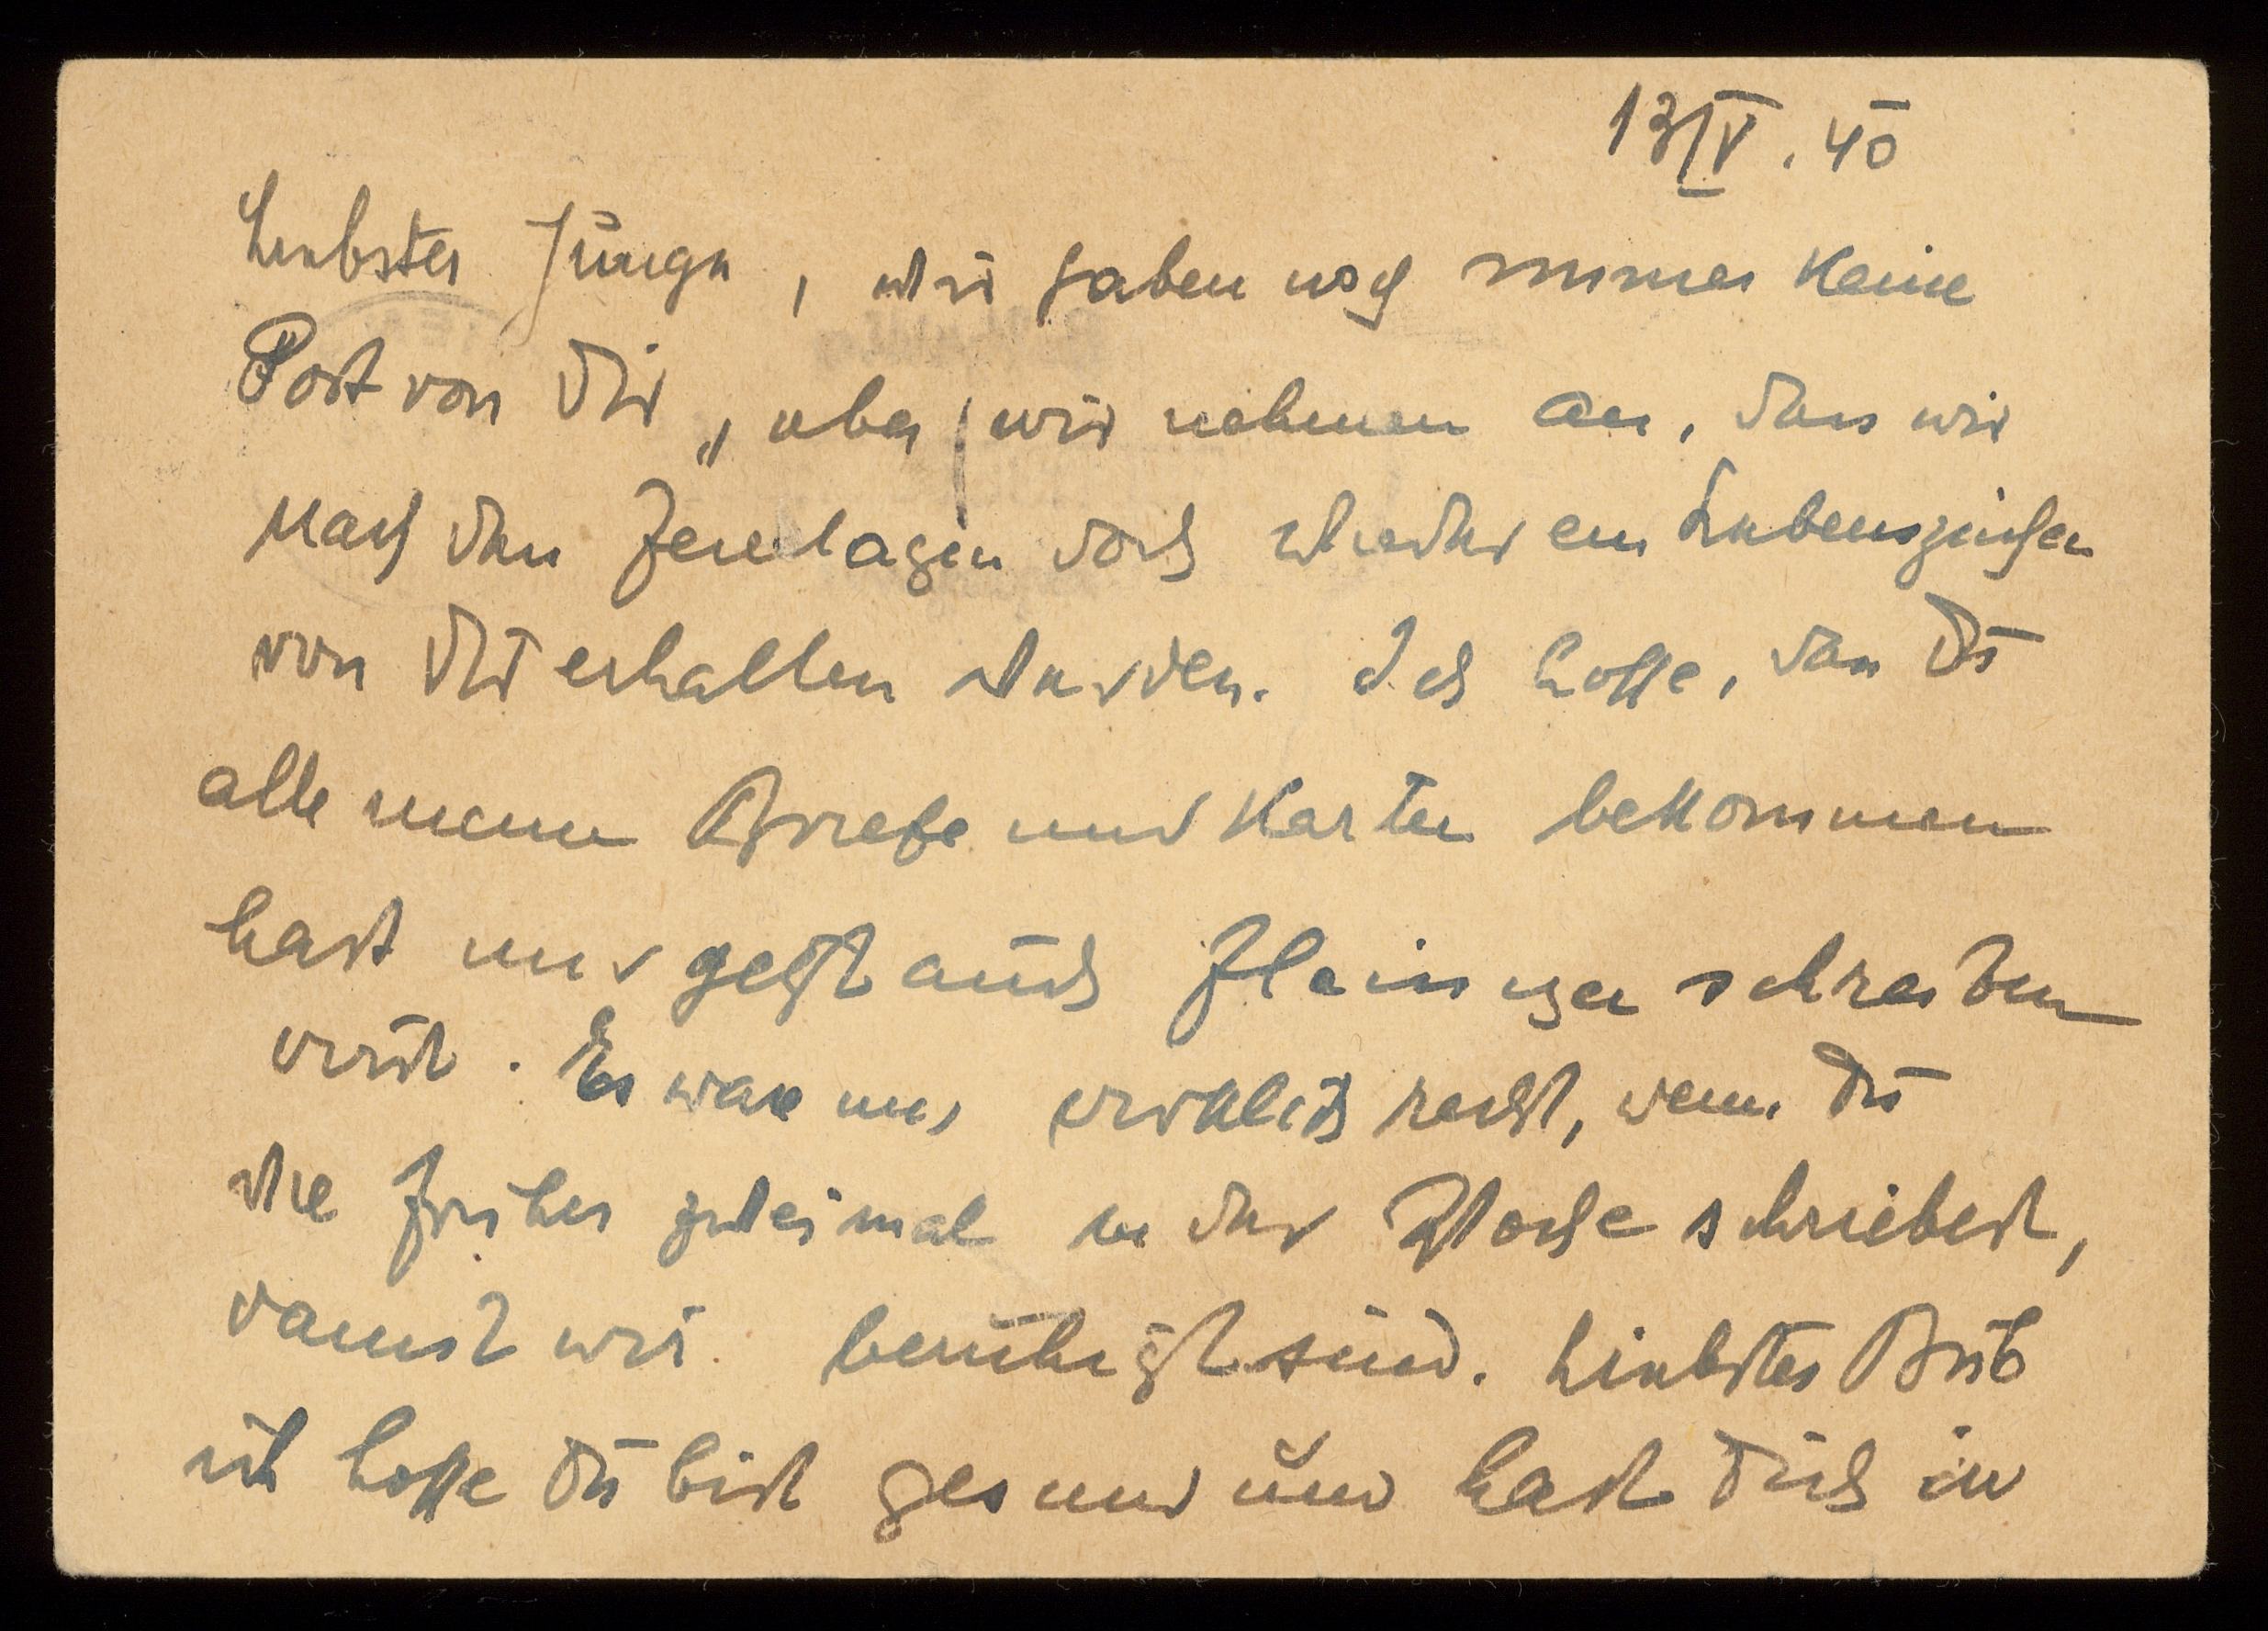 13/IV. 40
Liebster Junge, wir haben noch immer keine
Post von Dir, aber wir nehmen an, dass wir
nach den Feiertagen doch wieder ein Lebenszeichen
von Dir erhalten werden. Ich hoffe, dass Du
alle meine Briefe und Karten bekommen
hast und jetzt auch fleissiger schreiben
wirst. Es wäre uns wirklich recht, wenn Du
wie früher zweimal in der Woche schriebest,
damit wir beruhigt sind. Liebster Bub
ich hoffe Du bist gesund und hast Dich in